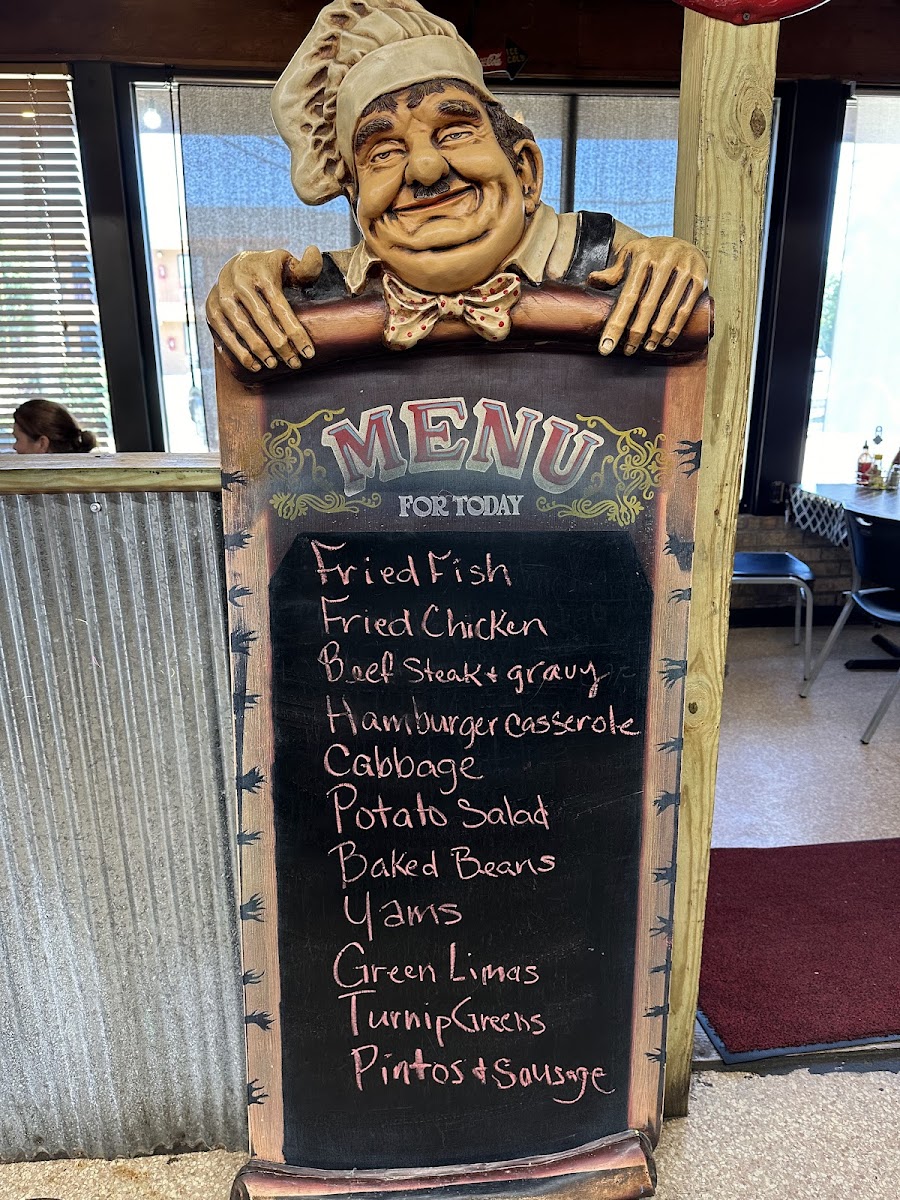 Coca-Cola
MENU
FOR TODAY
Fried Fish
Fried Chicken
Beef Steak + gravy
Hamburger casserole
Cabbage
Potato Salad
Baked Beans
Yams
Green Limas
Turnip Greens
Pintos + Sausage